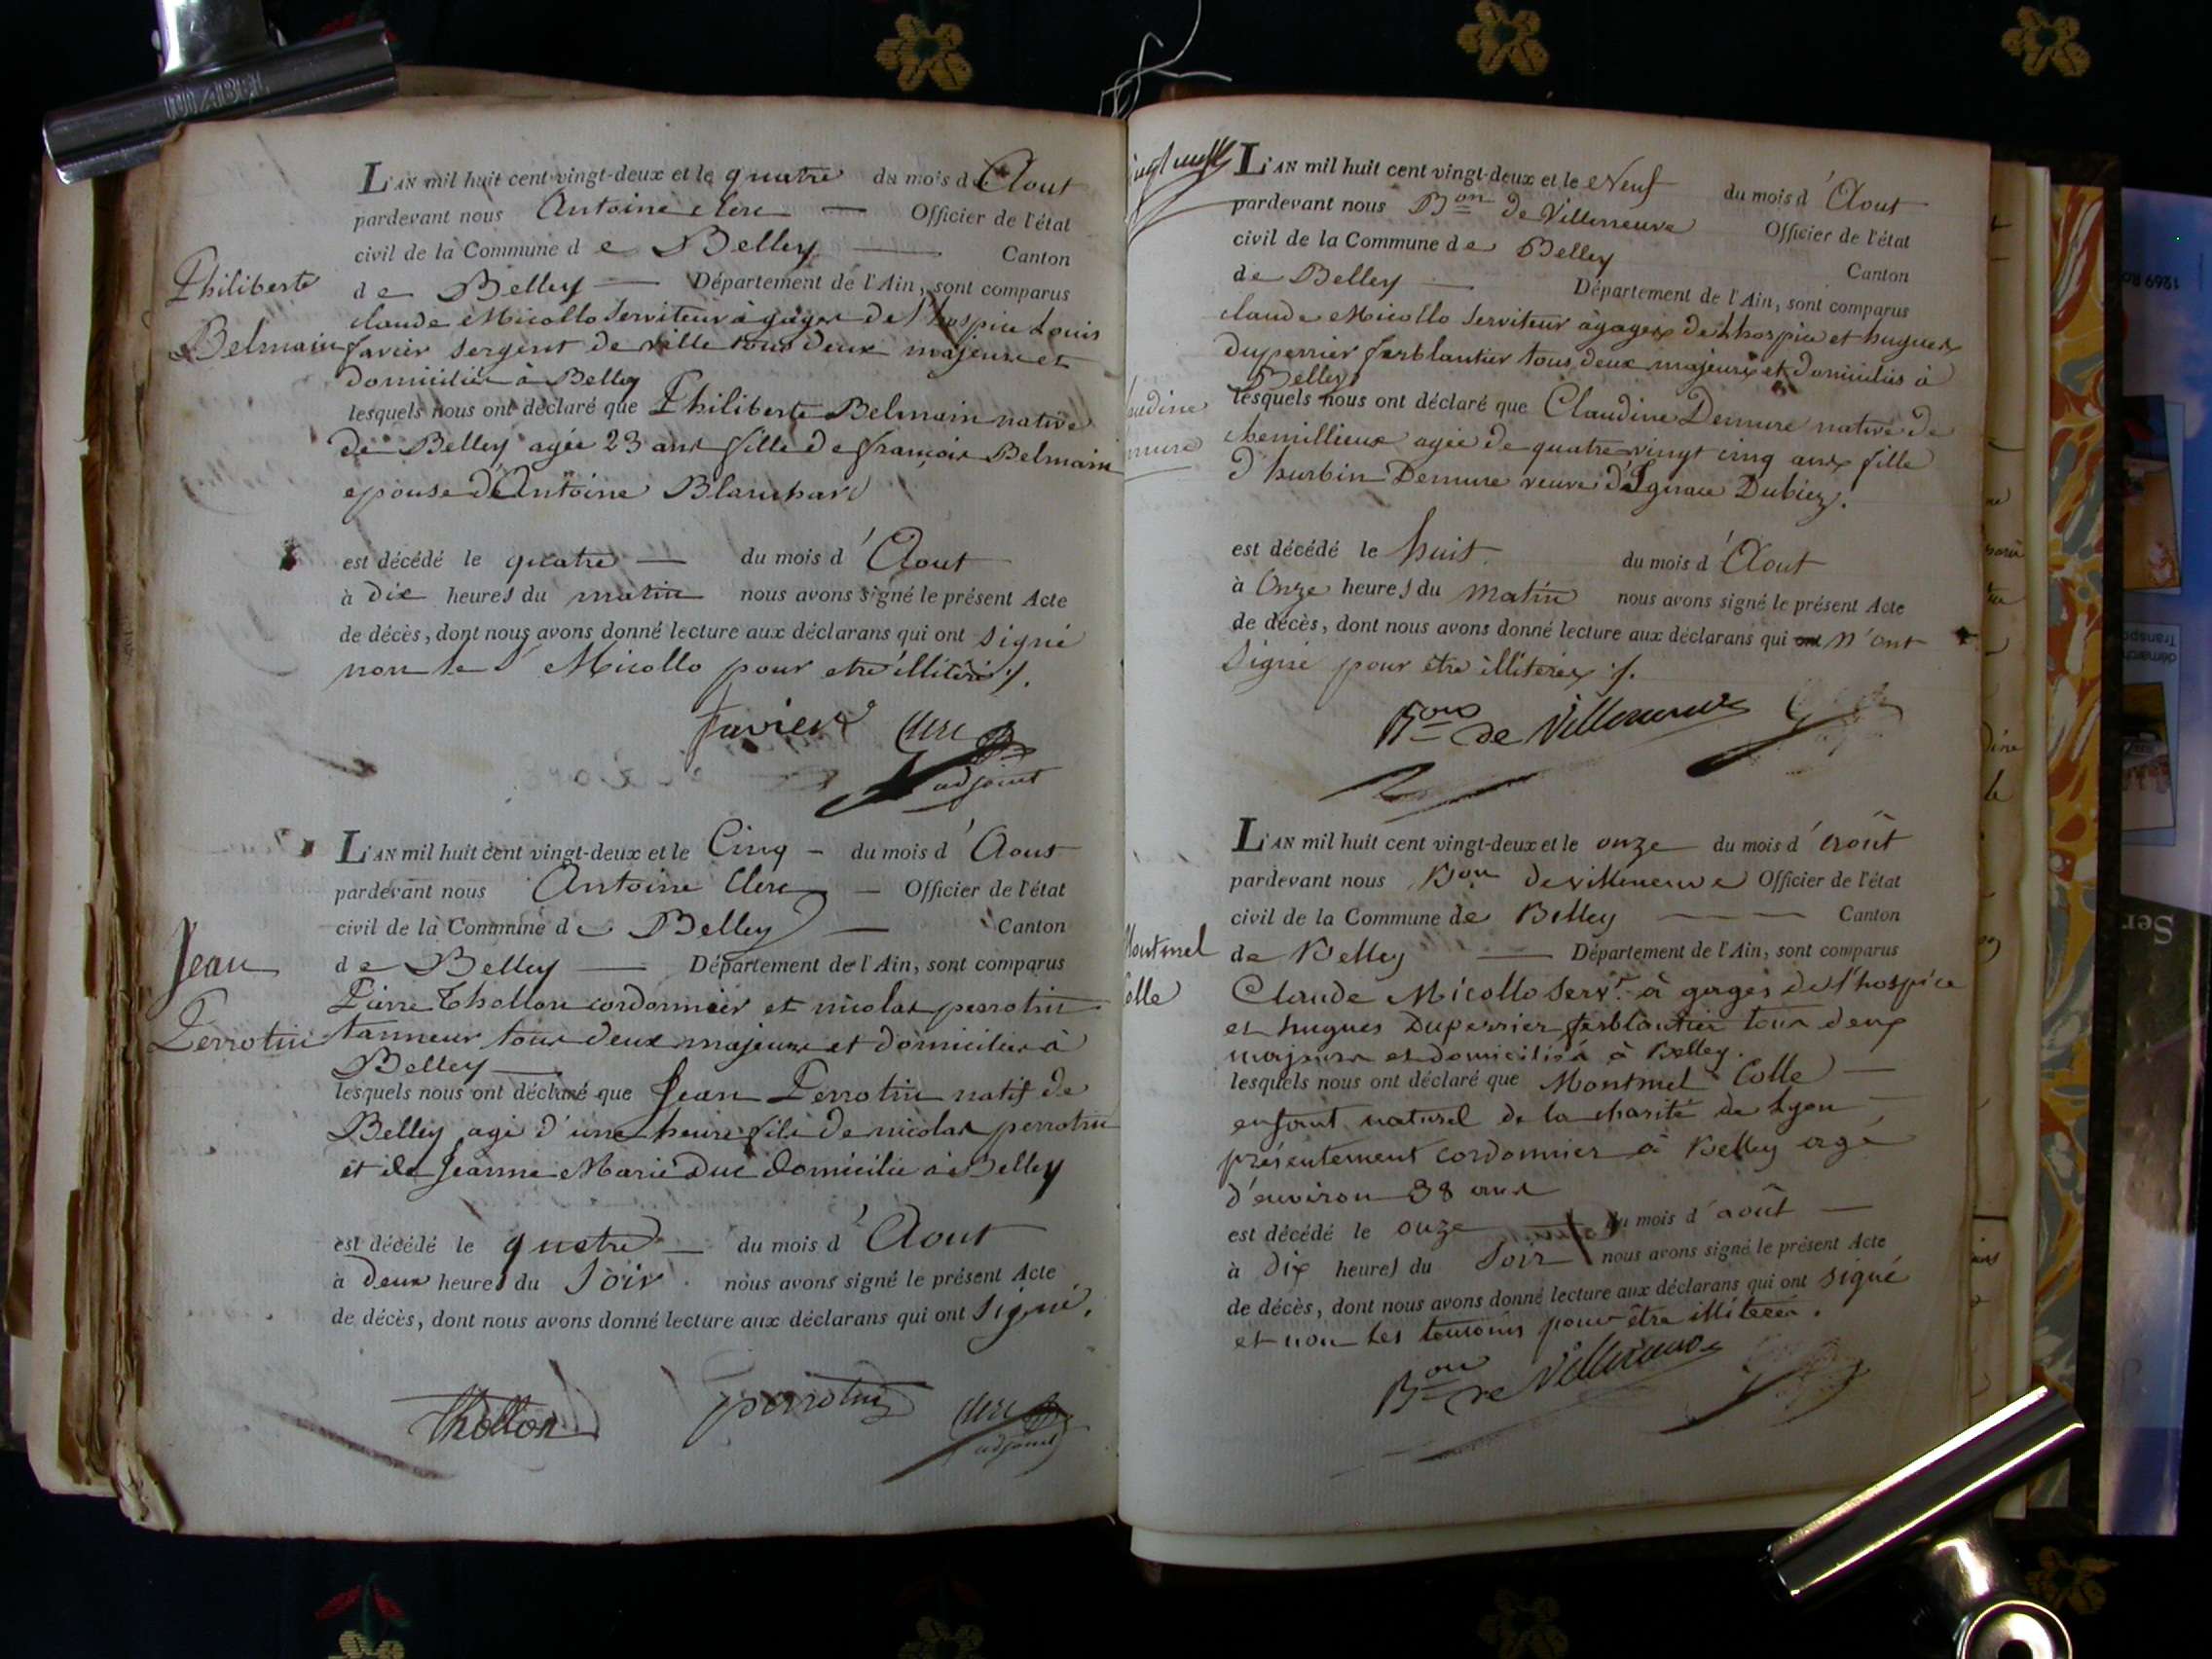 L'AN mil huit cent vingt-deux et le quatre du mois d'Aout
pardevant nous Antoine clerc — Officier de l'état
civil de la Commune de Belley — Canton
de Belley — Département de l'Ain, sont comparus
claude Micollo Serviteur à gages de l'hospice Louis
favier Sergent de ville tous deux majeurs et
domiciliés à Belley
Philiberte
Belmain
lesquels nous ont déclaré que Philiberte Belmain native
de Belley agée 23 ans fille de françois Belmain
epouse d'Antoine Blanchard
est décédé le quatre — du mois d'Aout
à dix heures du matin nous avons signé le présent Acte
de décès, dont nous avons donné lecture aux déclarans qui ont signé
non le Sr Micollo pour etre illiteré ./.
favier Clerc
adjoint
L'AN mil huit cent vingt-deux et le Cinq - du mois d'Aout
pardevant nous Antoine Clerc — Officier de l'état
civil de la Commune de Belley — Canton
de Belley — Département de l'Ain, sont comparus
Pierre Thollon cordonnier et nicolas perrotin
tanneur tous deux majeurs et domiciliés à
Belley —
Jean
Perrotin
lesquels nous ont déclaré que Jean Perrotin natif de
Belley agé d'une heure fils de nicolas perrotin
et de Jeanne Marie Duc domicilié à Belley
est décédé le quatre — du mois d'Aout
à deux heures du Soir nous avons signé le présent Acte
de décès, dont nous avons donné lecture aux déclarans qui ont Signé.
thollon perrotin Clerc
adjoint
L'AN mil huit cent vingt-deux et le Neuf du mois d'Aout
pardevant nous Bon de Villeneuve Officier de l'état
civil de la Commune de Belley Canton
de Belley — Département de l'Ain, sont comparus
claude Micollo Serviteur à gages de Lhospice et hugues
duperrier ferblantier tous deux majeurs et domiciliés à
Belley
audine
mure
lesquels nous ont déclaré que Claudine Demure native de
chemillieux agée de quatre vingt cinq ans fille
d'hurbin Demure veuve d'Ignace Dubiez.
est décédé le huit du mois d'Aout
à Onze heures du matin nous avons signé le présent Acte
de décès, dont nous avons donné lecture aux déclarans qui ont n'ont
Signé pour être illiterés ./.
Bon de Villeneuve
L'AN mil huit cent vingt-deux et le onze du mois d'août
pardevant nous Bon de villeneuve Officier de l'état
civil de la Commune de Belley — Canton
de Belley — Département de l'Ain, sont comparus
Claude Micollo servr. à gages de l'hospice
et hugues Duperrier ferblantier tous deux
majeurs et domiciliés à Belley.
Montmel
Colle
lesquels nous ont déclaré que Montmel Colle —
enfant naturel de la charité de Lyon
présentement cordonnier à Belley agé
d'environ 38 ans
est décédé le onze du mois d'août —
à dix heures du Soir nous avons signé le présent Acte
de décès, dont nous avons donné lecture aux déclarans qui ont signé
et non les temoins pour être illiterés.
Bon de Villeneuve